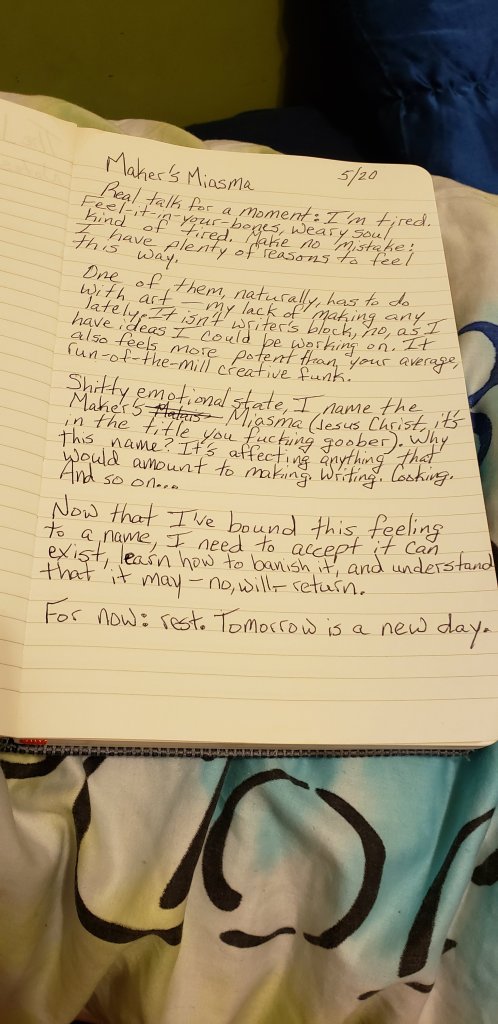 Maker's Miasma 5/20
Real talk for a moment: I'm tired.
Feel-it-in-your-bones, weary soul
kind of tired. Make no mistake:
I have plenty of reasons to feel
this way.
One of them, naturally, has to do
with art — my lack of making any
lately. It isn't writer's block, no, as I
have ideas I could be working on. It
also feels more potent than your average,
run-of-the-mill creative funk.
Shitty emotional state, I name the
Maker's Malais Miasma (Jesus Christ, it's
in the title you fucking goober). Why
this name? It's affecting anything that
would amount to making. Writing. Cooking.
And so on...
Now that I've bound this feeling
to a name, I need to accept it can
exist, learn how to banish it, and understand
that it may — no, will — return.
For now: rest. Tomorrow is a new day.